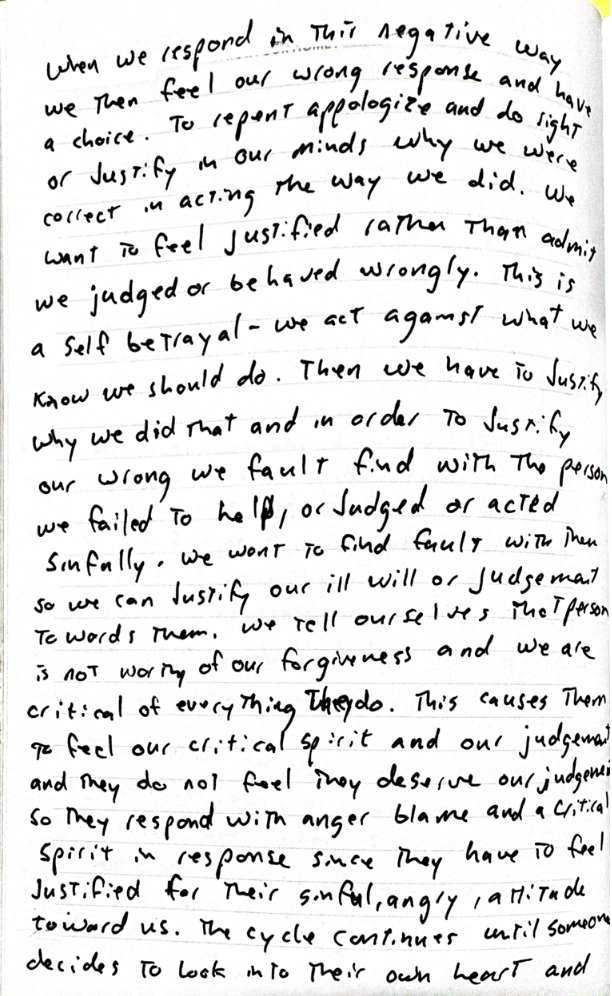 when we respond in this negative way
we then feel our wrong response and have
a choice. To repent appologize and do right
or Justify in our minds why we were
correct in acting the way we did. we
want to feel justified rather than admit
we judged or behaved wrongly. This is
a self betrayal - we act against what we
know we should do. Then we have to Justify
why we did that and in order to Justify
our wrong we fault find with the person
we failed to help, or Judged or acted
sinfully. we want to find fault with them
so we can Justify our ill will or Judgement
towards them. we tell ourselves that person
is not worthy of our forgiveness and we are
critical of everything they do. This causes them
to feel our critical spirit and our judgement
and they do not feel they deserve our judgement
so they respond with anger blame and a critical
spirit in response since they have to feel
Justified for their sinful, angry, attitude
toward us. The cycle continues until someone
decides to look into their own heart and